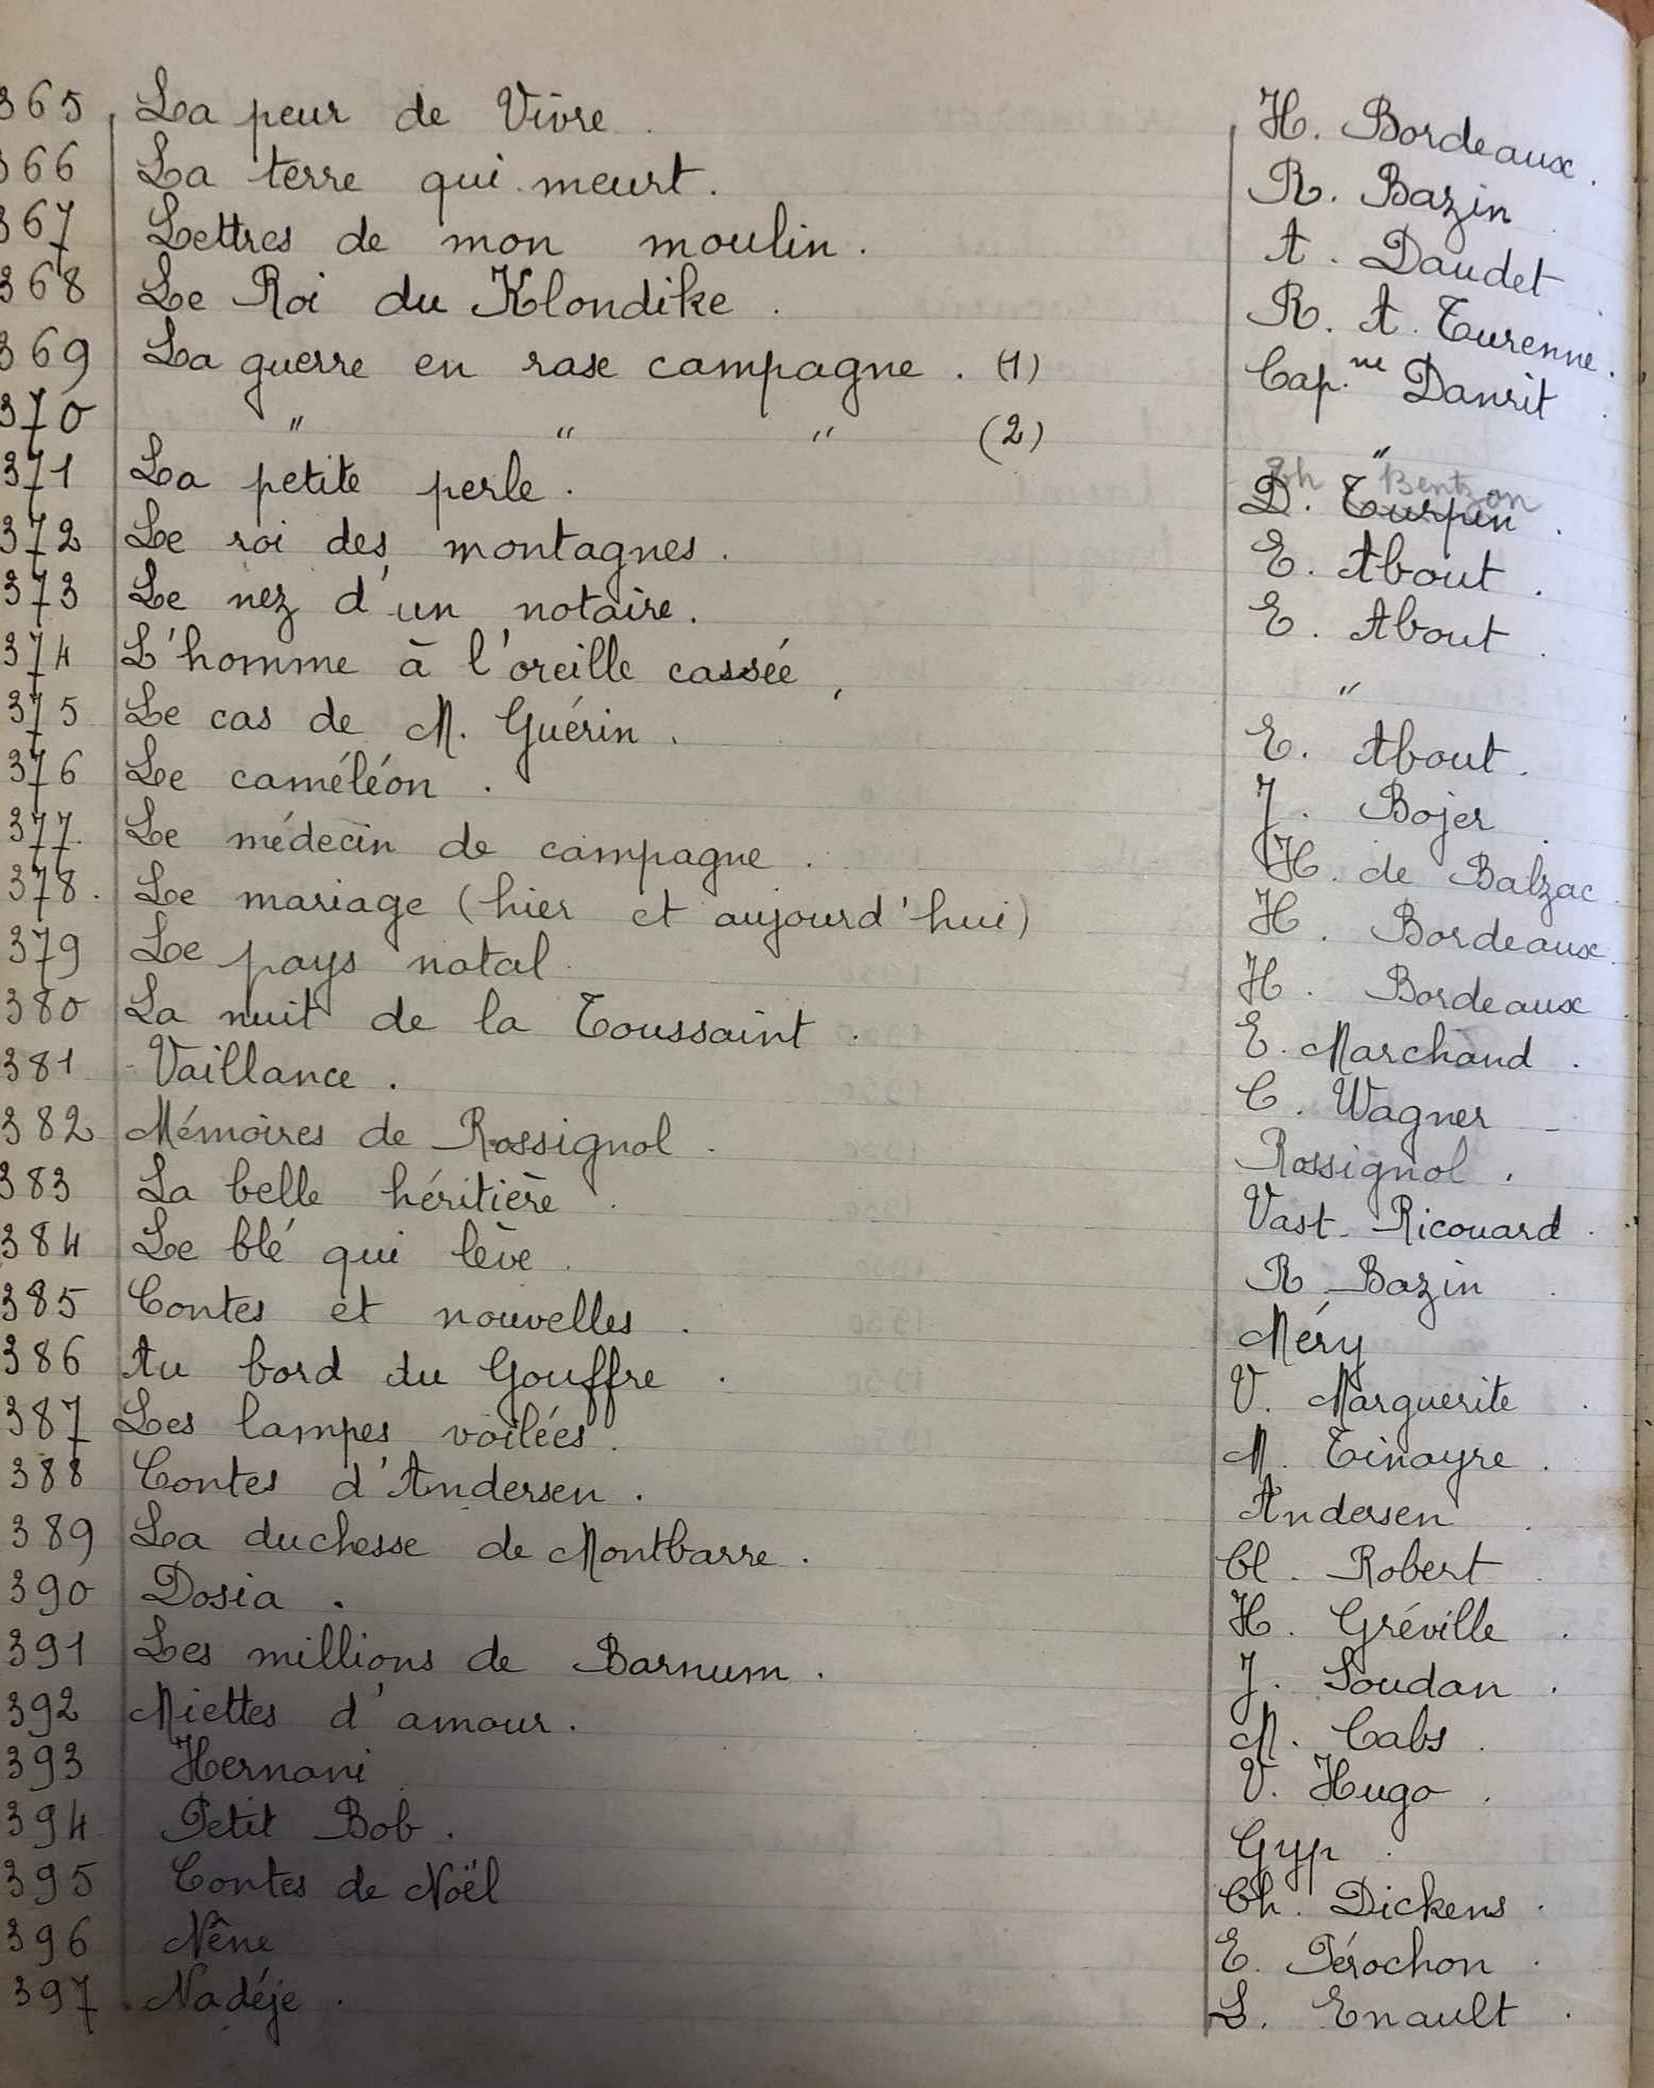 365 La peur de Vivre. H. Bordeaux.
366 La terre qui meurt. R. Bazin
367 Lettres de mon moulin. A. Daudet
368 Le Roi du Klondike. R. A. Turenne.
369 La guerre en rase campagne. (1) Cap.ne Danrit
370 " " " (2) "
371 La petite perle. D. Turpin. Th Bentzon
372 Le roi des montagnes. E. About.
373 Le nez d'un notaire. E. About.
374 L'homme à l'oreille cassée, "
375 Le cas de M. Guérin. E. About.
376 Le caméléon. J. Bojer
377. Le médecin de campagne. H. de Balzac
378. Le mariage (hier et aujourd'hui) H. Bordeaux
379 Le pays natal. H. Bordeaux
380 La nuit de la Toussaint. E. Marchand.
381 Vaillance. C. Wagner
382 Mémoires de Rossignol. Rossignol.
383 La belle héritière. Vast-Ricouard.
384 Le blé qui lève. R. Bazin
385 Contes et nouvelles. Méry
386 Au bord du Gouffre. V. Marguerite
387 Les lampes voilées. M. Tinayre.
388 Contes d'Andersen. Andersen
389 La duchesse de Montbarre. Cl. Robert
390 Dosia. H. Gréville.
391 Les millions de Barnum. J. Soudan.
392 Miettes d'amour. M. Cabs.
393 Hernani V. Hugo.
394 Petit Bob. Gyp.
395 Contes de Noël Ch. Dickens.
396 Nêne E. Pérochon.
397 Nadéje. L. Enault.